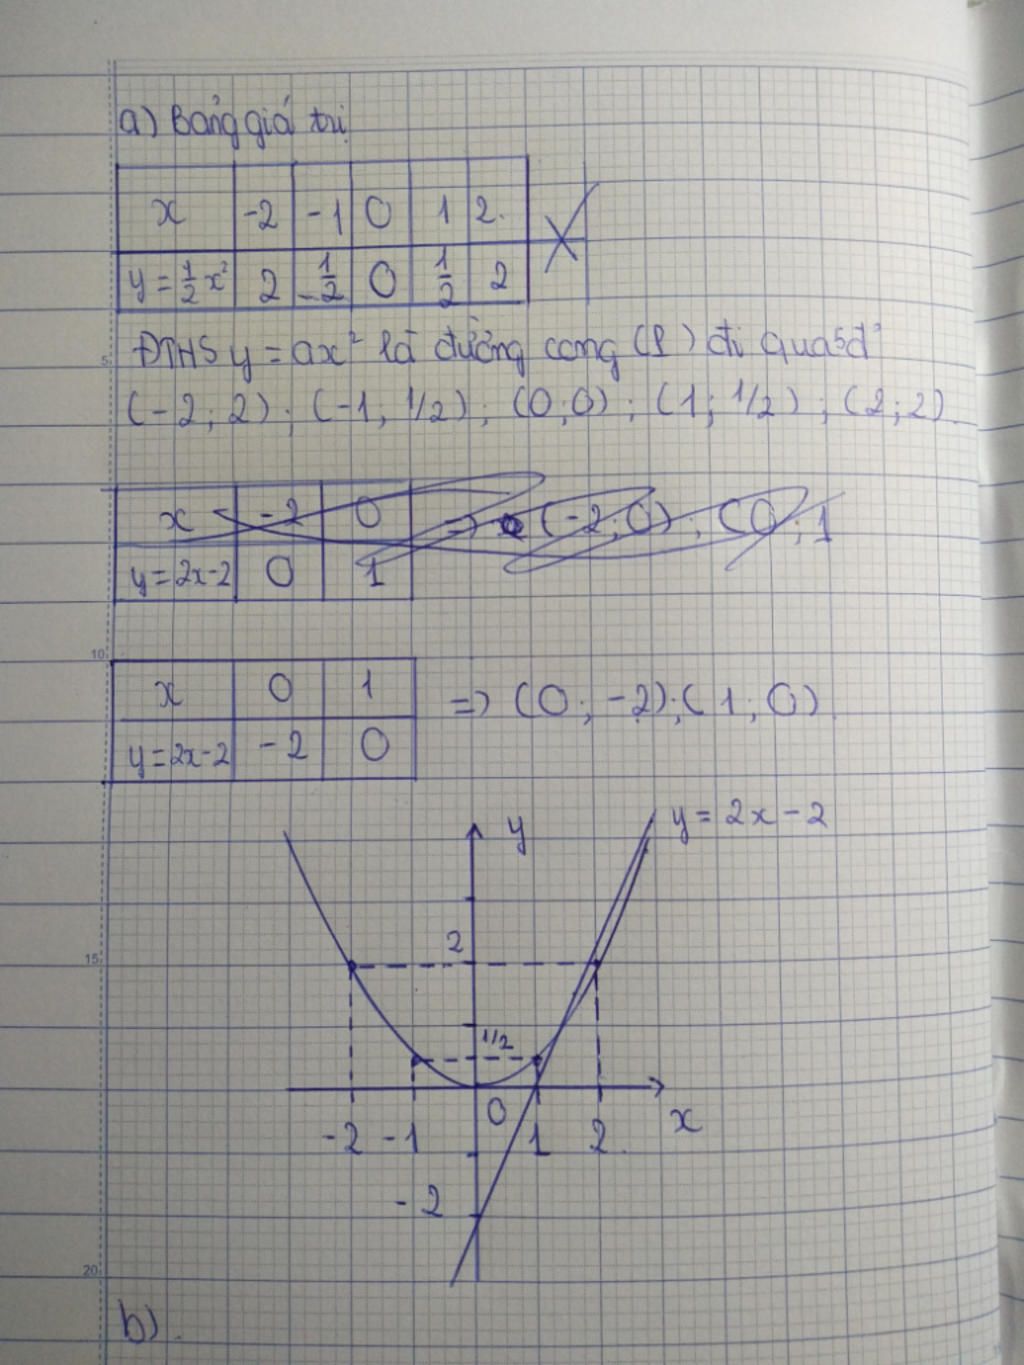 a) Bảng giá trị
x -2 -1 0 1 2.
y = 1/2 x² 2 -1/2 0 1/2 2
ĐTHS y = ax² là đường cong (P) đi qua 5đ'
(-2; 2); (-1; 1/2); (0; 0); (1; 1/2); (2; 2)
x -2 0 => (-2; 0); (0; 1
y = 2x-2 0 1
x 0 1 => (0; -2); (1; 0)
y = 2x-2 -2 0
y = 2x - 2
y
2
1/2
0
x
-2 -1 1 2.
-2
b).
5
10
15
20